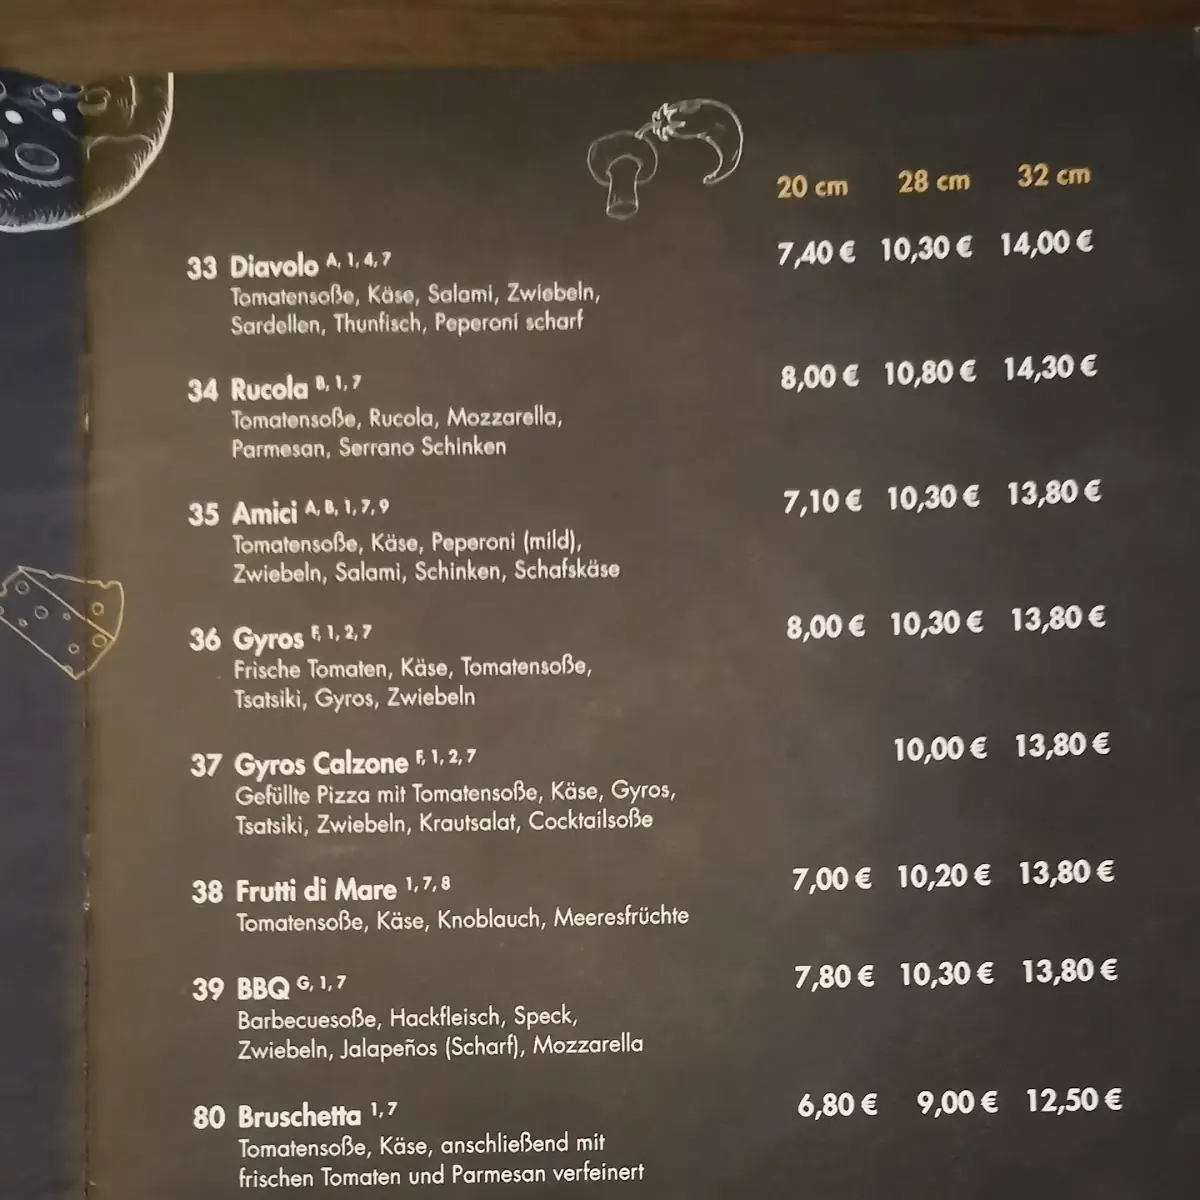 20 cm 28 cm 32 cm
33 Diavolo A, 1, 4, 7 7,40 € 10,30 € 14,00 €
Tomatensoße, Käse, Salami, Zwiebeln,
Sardellen, Thunfisch, Peperoni scharf
34 Rucola B, 1, 7 8,00 € 10,80 € 14,30 €
Tomatensoße, Rucola, Mozzarella,
Parmesan, Serrano Schinken
35 Amici A, B, 1, 7, 9 7,10 € 10,30 € 13,80 €
Tomatensoße, Käse, Peperoni (mild),
Zwiebeln, Salami, Schinken, Schafskäse
36 Gyros F, 1, 2, 7 8,00 € 10,30 € 13,80 €
Frische Tomaten, Käse, Tomatensoße,
Tsatsiki, Gyros, Zwiebeln
37 Gyros Calzone F, 1, 2, 7 10,00 € 13,80 €
Gefüllte Pizza mit Tomatensoße, Käse, Gyros,
Tsatsiki, Zwiebeln, Krautsalat, Cocktailsoße
38 Frutti di Mare 1, 7, 8 7,00 € 10,20 € 13,80 €
Tomatensoße, Käse, Knoblauch, Meeresfrüchte
39 BBQ G, 1, 7 7,80 € 10,30 € 13,80 €
Barbecuesoße, Hackfleisch, Speck,
Zwiebeln, Jalapeños (Scharf), Mozzarella
80 Bruschetta 1, 7 6,80 € 9,00 € 12,50 €
Tomatensoße, Käse, anschließend mit
frischen Tomaten und Parmesan verfeinert